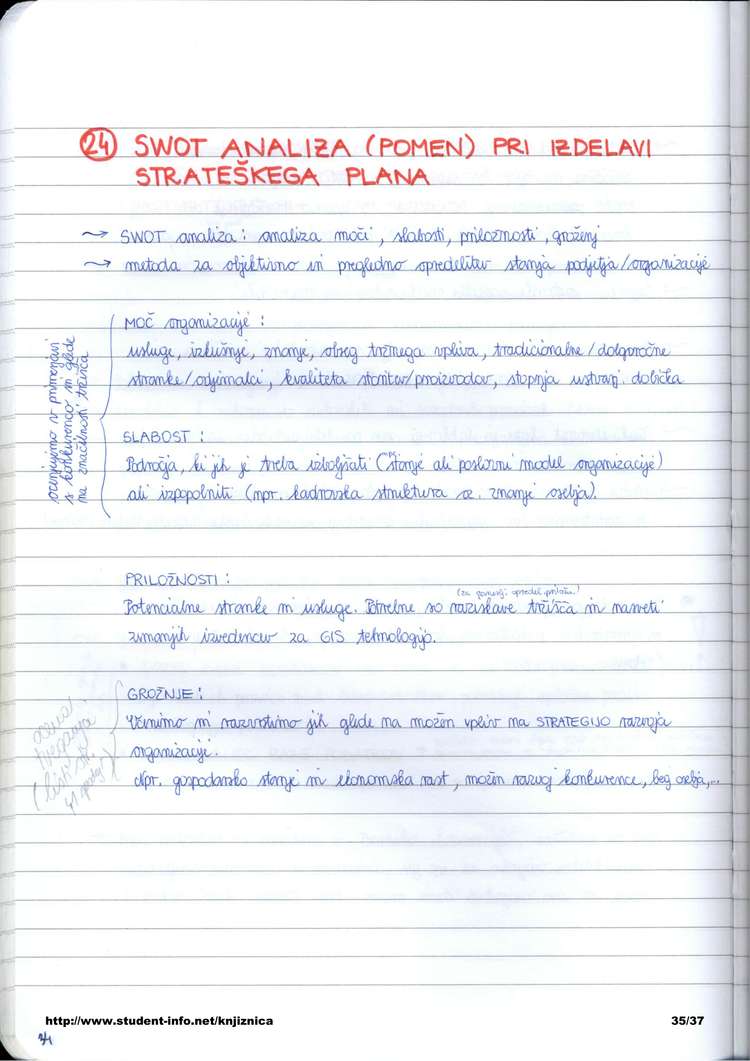 24 SWOT ANALIZA (POMEN) PRI IZDELAVI
STRATEŠKEGA PLANA
→ SWOT analiza: analiza moči, slabosti, priložnosti, groženj
→ metoda za objektivno in pregledno opredelitev stanja podjetja/organizacije
ocenjujemo v primerjavi
s konkurenco in glede
na značilnosti tržišča
MOČ organizacije:
usluge, izkušnje, znanje, obseg tržnega vpliva, tradicionalne/dolgoročne
stranke/odjemalci, kvaliteta storitev/proizvodov, stopnja ustvarj. dobička
SLABOST:
Področja, ki jih je treba izboljšati (stanje ali poslovni model organizacije)
ali izpopolniti (npr. kadrovska struktura oz. znanje osebja).
PRILOŽNOSTI:
Potencialne stranke in usluge. Potrebne so raziskave tržišča in nasveti
zunanjih izvedencev za GIS tehnologijo.
GROŽNJE:
in razvrstimo jih glede na možen vpliv na STRATEGIJO razvoja
organizacije.
Npr. gospodarsko stanje in ekonomska rast, možen razvoj konkurence, beg osebja,...
ocena
tveganja
http://www.student-info.net/knjiznica
35/37